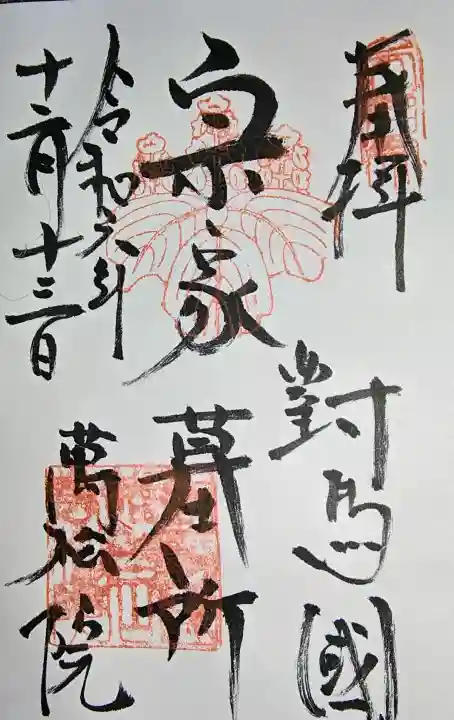 奉拝
對馬國
宗家墓所
令和元年
十二月十三日
萬松院